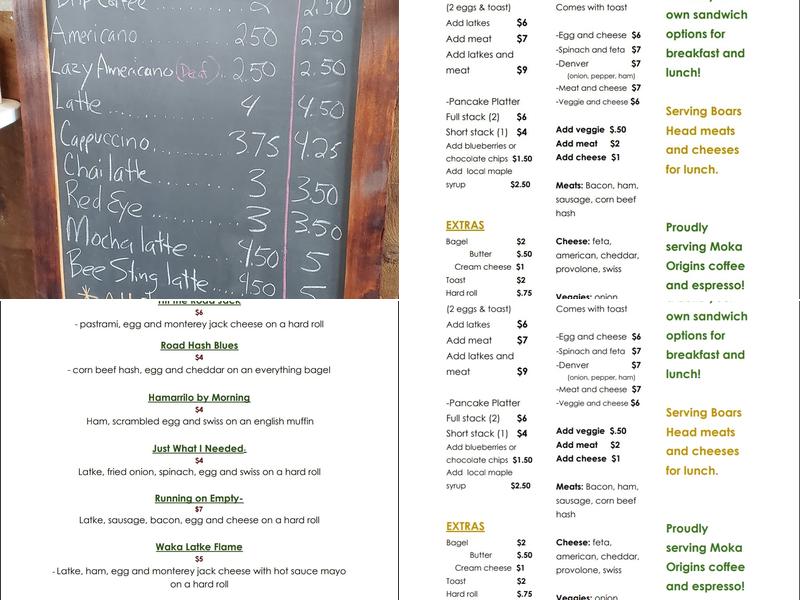 Drip Coffee 2 2.50
Americano ........ 250 2.50
Lazy Americano (Decaf) .. 2.50 2.50
Latte .......... 4 4.50
Cappuccino ....... 3.75 4.25
Chai latte ....... 3 3.50
Red Eye ........ 3 3.50
Mocha latte ...... 4.50 5
Bee Sting latte ..... 450 5
(2 eggs & toast)
Add latkes $6
Add meat $7
Add latkes and
meat $9
-Pancake Platter
Full stack (2) $6
Short stack (1) $4
Add blueberries or
chocolate chips $1.50
Add local maple
syrup $2.50
EXTRAS
Bagel $2
Butter $.50
Cream cheese $1
Toast $2
Hard roll $.75
Comes with toast
-Egg and cheese $6
-Spinach and feta $7
-Denver $7
(onion, pepper, ham)
-Meat and cheese $7
-Veggie and cheese $6
Add veggie $.50
Add meat $2
Add cheese $1
Meats: Bacon, ham,
sausage, corn beef
hash
Cheese: feta,
american, cheddar,
provolone, swiss
Veggies: onion
own sandwich
options for
breakfast and
lunch!
Serving Boars
Head meats
and cheeses
for lunch.
Proudly
serving Moka
Origins coffee
and espresso!
Hit the Road Jack
$6
- pastrami, egg and monterey jack cheese on a hard roll
Road Hash Blues
$4
- corn beef hash, egg and cheddar on an everything bagel
Hamarrilo by Morning
$4
Ham, scrambled egg and swiss on an english muffin
Just What I Needed.
$4
Latke, fried onion, spinach, egg and swiss on a hard roll
Running on Empty-
$7
Latke, sausage, bacon, egg and cheese on a hard roll
Waka Latke Flame
$5
- Latke, ham, egg and monterey jack cheese with hot sauce mayo
on a hard roll
(2 eggs & toast)
Add latkes $6
Add meat $7
Add latkes and
meat $9
-Pancake Platter
Full stack (2) $6
Short stack (1) $4
Add blueberries or
chocolate chips $1.50
Add local maple
syrup $2.50
EXTRAS
Bagel $2
Butter $.50
Cream cheese $1
Toast $2
Hard roll $.75
Comes with toast
-Egg and cheese $6
-Spinach and feta $7
-Denver $7
(onion, pepper, ham)
-Meat and cheese $7
-Veggie and cheese $6
Add veggie $.50
Add meat $2
Add cheese $1
Meats: Bacon, ham,
sausage, corn beef
hash
Cheese: feta,
american, cheddar,
provolone, swiss
Veggies: onion
own sandwich
options for
breakfast and
lunch!
Serving Boars
Head meats
and cheeses
for lunch.
Proudly
serving Moka
Origins coffee
and espresso!